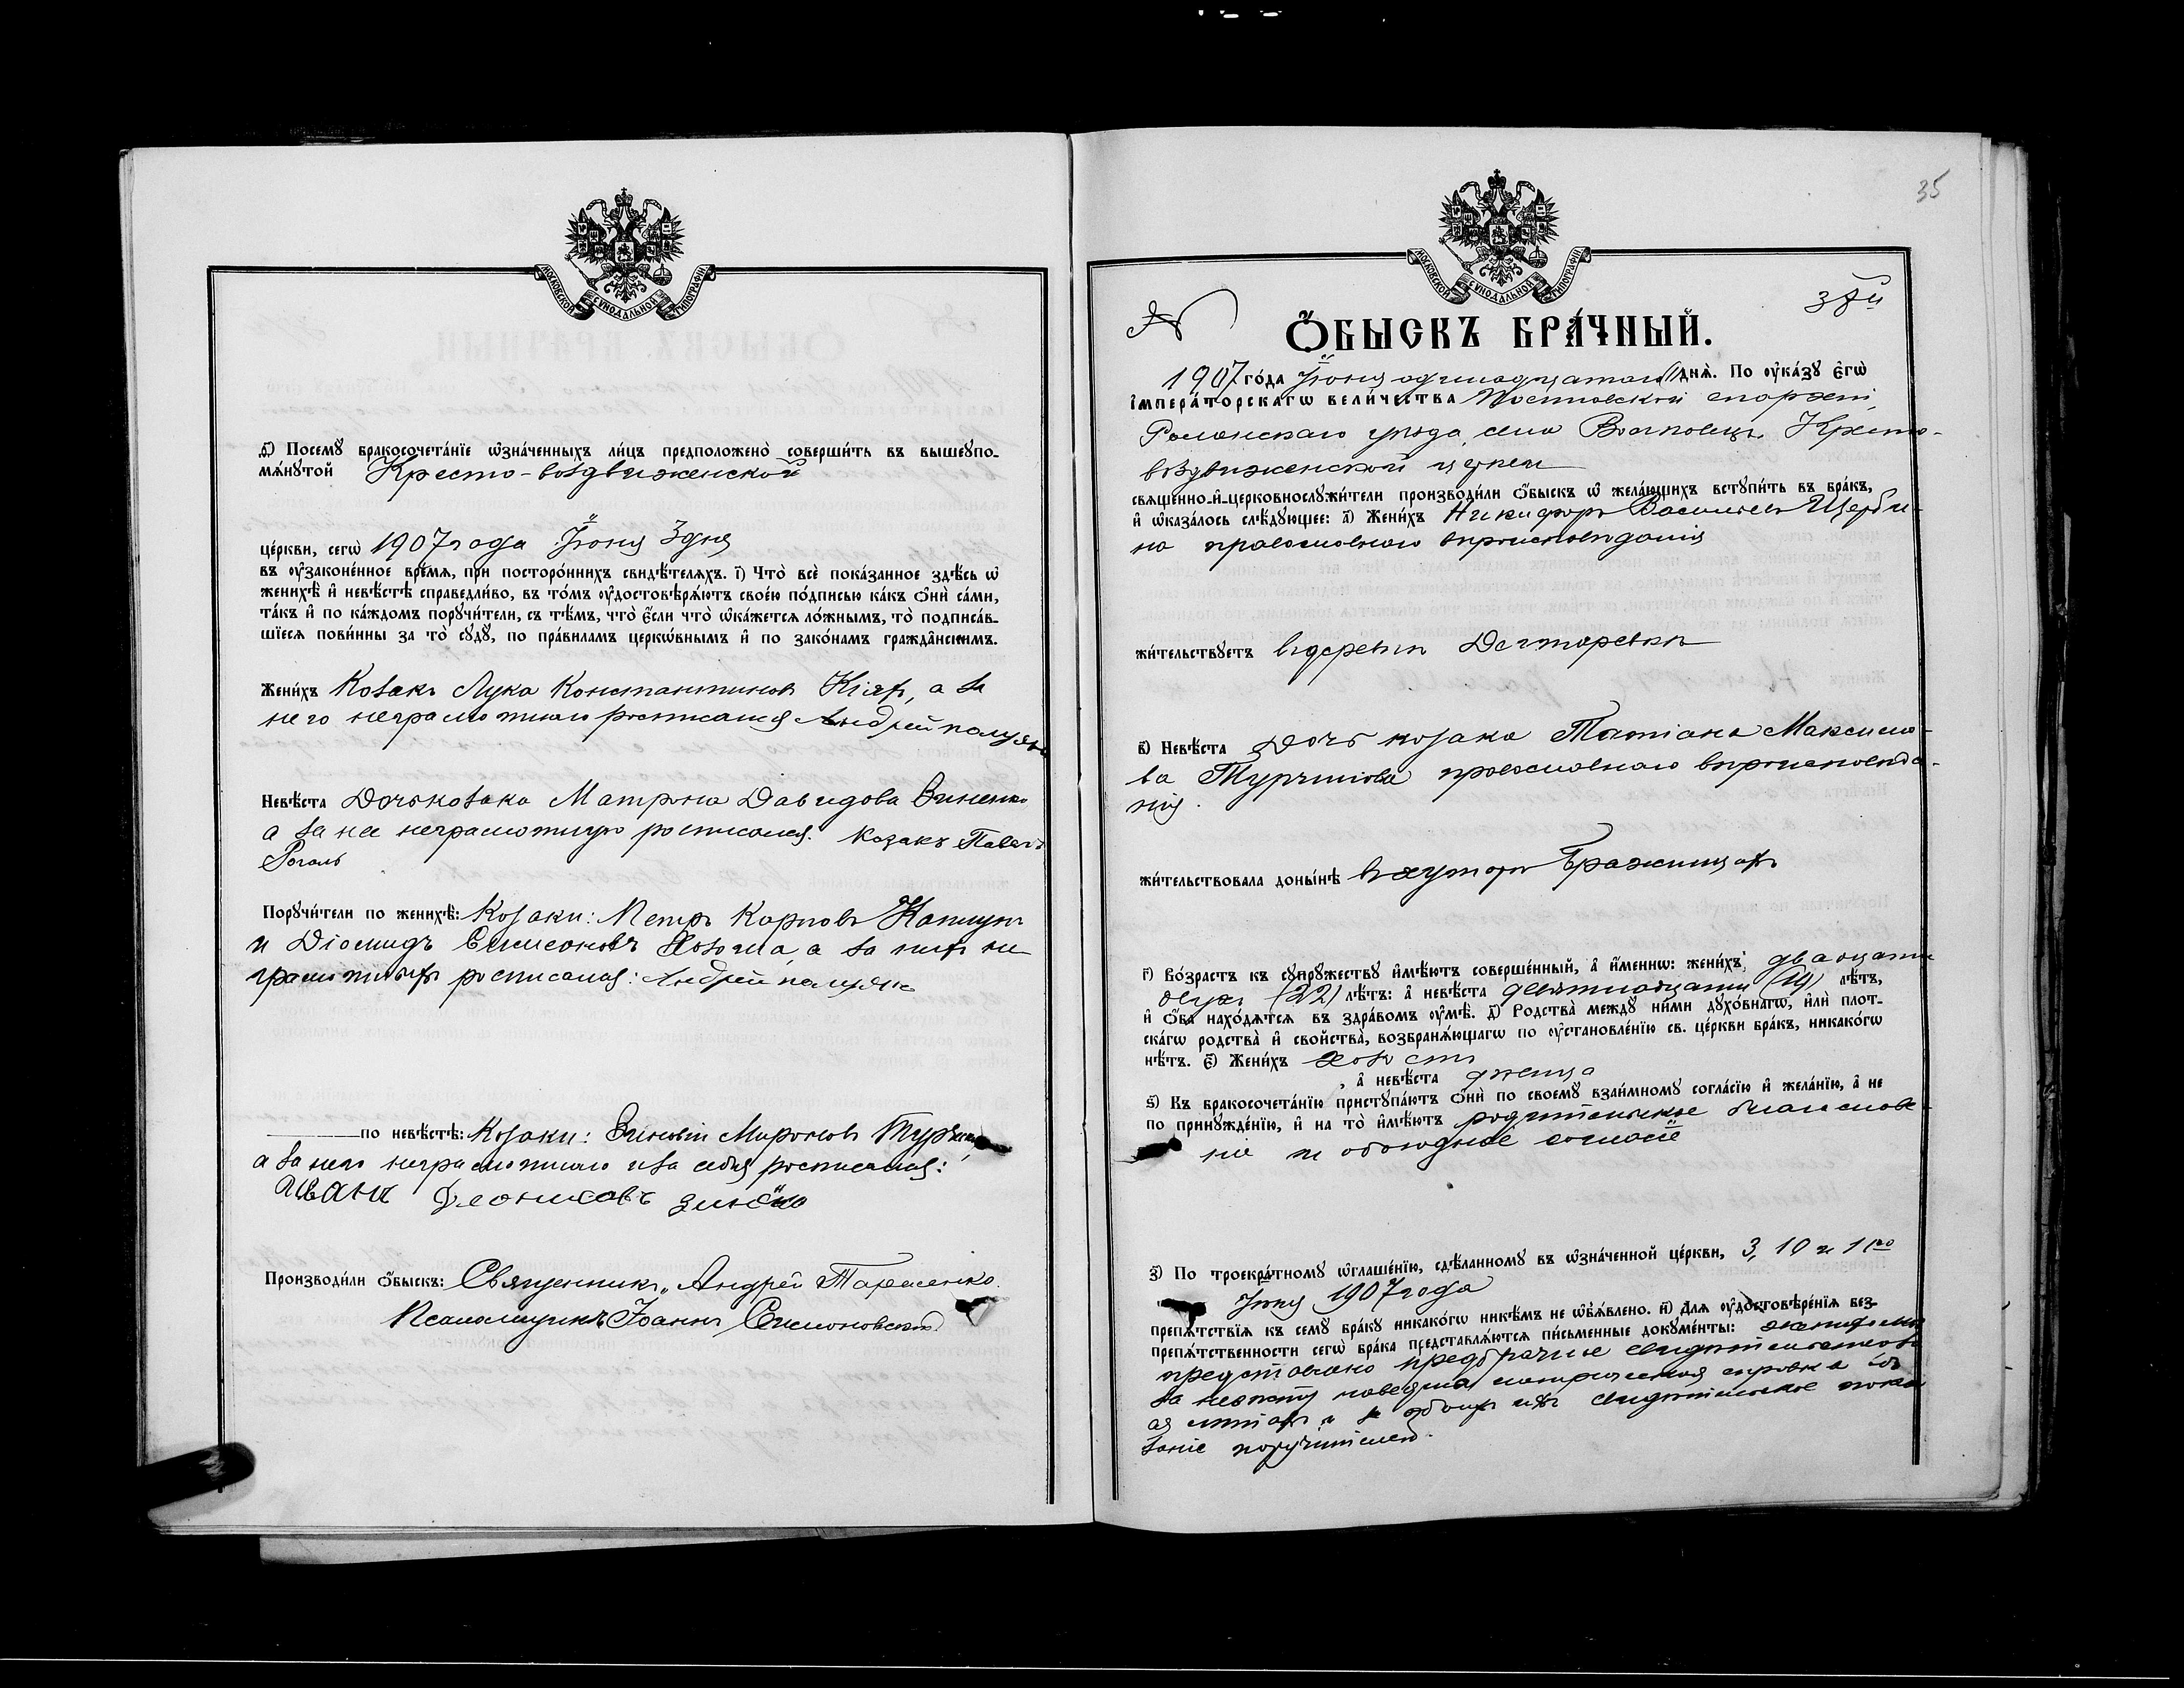 МОСКОВСКОЙ СУНОДАЛЬНОЙ ТИПОГРАФІИ
ѳ҃) Посемꙋ бракосочета́нїе ѡ҆зна́ченныхъ ли́цъ предположено̀ соверши́ть въ вышеꙋпо-
мѧ́нꙋтой Кресто-воздвиженской
це́ркви, сегѡ̀ 1907 года Іюня 3 дня
въ ᲂу҆законе́нное вре́мѧ, при посторо́ннихъ свидѣ́телѧхъ. і҃) Что̀ всѐ пока́занное здѣ́сь ѡ҆
женихѣ̀ и҆ невѣ́стѣ справедли́во, въ то́мъ ᲂу҆достовѣрѧ́ютъ своє́ю по́дписью ка́къ ѻ҆нѝ са́ми,
та́къ и҆ по ка́ждомъ порꙋчи́тели, съ тѣ́мъ, что̀ є҆́сли что̀ ѡ҆ка́жетсѧ ло́жнымъ, то̀ подписа́в-
шїесѧ пови́нны за то̀ сꙋдꙋ̀, по пра́виламъ церкѡ́внымъ и҆ по зако́намъ гражда̂нскимъ.
Жени́хъ Козакъ Лука Константиновъ а за
него неграмотнаго росписался Андрей
Невѣ́ста Дочь козака Матрона Давидова Зиненко
а за нее неграмотную росписался. Козакъ Павелъ
Рогаль
Порꙋчи́тели по женихѣ̀: Козаки: Петръ Карповъ
и Діомидъ Симеоновъ а за нихъ не
грамотныхъ росписался: Андрей
по невѣ́стѣ: Козаки: Зиновій Мироновъ
а за него неграмотнаго и за себя росписался:
Иванъ
Производи́ли ѻ҆́быскъ: Священникъ Андрей Тарасенко.
Псаломщикъ Іоаннъ Симоновскій
35
МОСКОВСКОЙ СУНОДАЛЬНОЙ ТИПОГРАФІИ
№
Ѻ҆́БЫСКЪ БРА́ЧНЫЙ.
1907 го́да Іюня одинадцатаго 11 днѧ̀. По ᲂу҆ка́зꙋ є҆гѡ̀
і҆мпера́торскагѡ вели́чества Полтавской епархіи,
Роменскаго уѣзда, села Волковецъ Кресто-
воздвиженской церкви
свѧще́нно-и҆-церковнослꙋжи́тели производи́ли ѻ҆́быскъ ѡ҆ жела́ющихъ встꙋпи́ть въ бра́къ,
и҆ ѡ҆каза́лось слѣ́дꙋющее: а҃) Жени́хъ Никифоръ Васильевъ Щерби-
на православнаго вѣроисповѣданія
жи́тельствꙋетъ въ деревнѣ Дегтяревкѣ
в҃) Невѣ́ста дочь козака Татіана Максимо-
ва Турчинова православнаго вѣроисповѣда-
нія.
жи́тельствовала донынѣ̀ въ хуторѣ Бражинцахъ
г҃) Во́зрастъ къ сꙋпрꙋ́жествꙋ и҆мѣ́ютъ соверше́нный, а҆ и҆́меннѡ: жени́хъ двадцати
двухъ (22) лѣ́тъ: а҆ невѣ́ста девятнадцати (19) лѣ́тъ,
и҆ ѻ҆́ба нахо́дѧтсѧ въ здра́вомъ ᲂу҆мѣ̀. д҃) Родства̀ междꙋ̀ ни́ми дꙋхо́внагѡ, и҆лѝ плот-
ска́гѡ родства̀ и҆ сво́йства̀, возбранѧ́ющагѡ по ᲂу҆становле́нїю св. це́ркви бра́къ, никако́гѡ
нѣ́тъ. є҃) Жени́хъ холостъ
, а҆ невѣ́ста дѣвица
ѕ҃) Къ бракосочета́нїю пристꙋпа́ютъ ѻ҆нѝ по своемꙋ̀ взаи́мномꙋ согла́сїю и҆ жела́нїю, а҆ не
по принꙋжде́нїю, и҆ на то̀ и҆мѣ́ютъ родительское благослове-
ніе и обоюдное согласіе
з҃) По троекра́тномꙋ ѡ҆глаше́нїю, сдѣ́ланномꙋ въ ѡ҆зна́ченной це́ркви, 3, 10 и 11го
Іюня 1907 года
препѧ́тствїѧ къ семꙋ̀ бра́кꙋ никако́гѡ никѣ́мъ не ѡ҆б̾ѧ́влено. и҃) Длѧ ᲂу҆достовѣре́нїѧ без-
препѧ́тственности сегѡ̀ бра́ка представлѧ́ютсѧ пи́сьменные докꙋме́нты: женихомъ
представлено предбрачное свидѣтельство
за невѣсту наведена метрическая справка
и о обоихъ ихъ свидѣтельское показ
заніе поручителей.